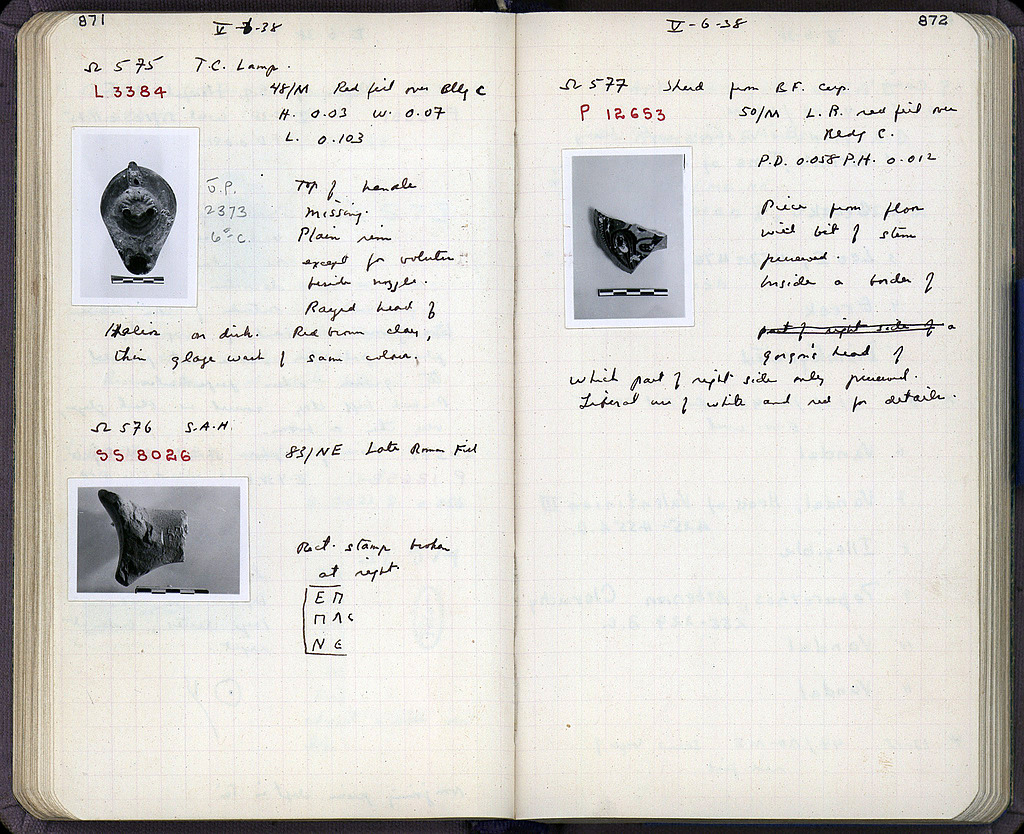 871
V-6-38
Ω 575 T.C. Lamp.
L 3384
48/M Red fill over Bldg C
H. 0.03 W. 0.07
L. 0.103
J.P.
2373
6"-C.
Top of handle
missing.
Plain rim
except for volutes
beside nozzle.
Rayed head of
Helios on disk. Red brown clay,
thin glaze wash of same colour.
Ω 576 S.A.H.
SS 8026
83/NE Late Roman Fill
Rect. stamp broken
at right.
ΕΠ
ΠΛϹ
ΝЄ
872
V-6-38
Ω 577 Sherd from B.F. cup.
P 12653
50/M L.R. red fill over
Bldg C.
P.D. 0.058 P.H. 0.012
Piece from floor
with bit of stem
preserved.
Inside a border of
part of right side of a
gorgon's head of
which part of right side only preserved.
Liberal use of white and red for details.